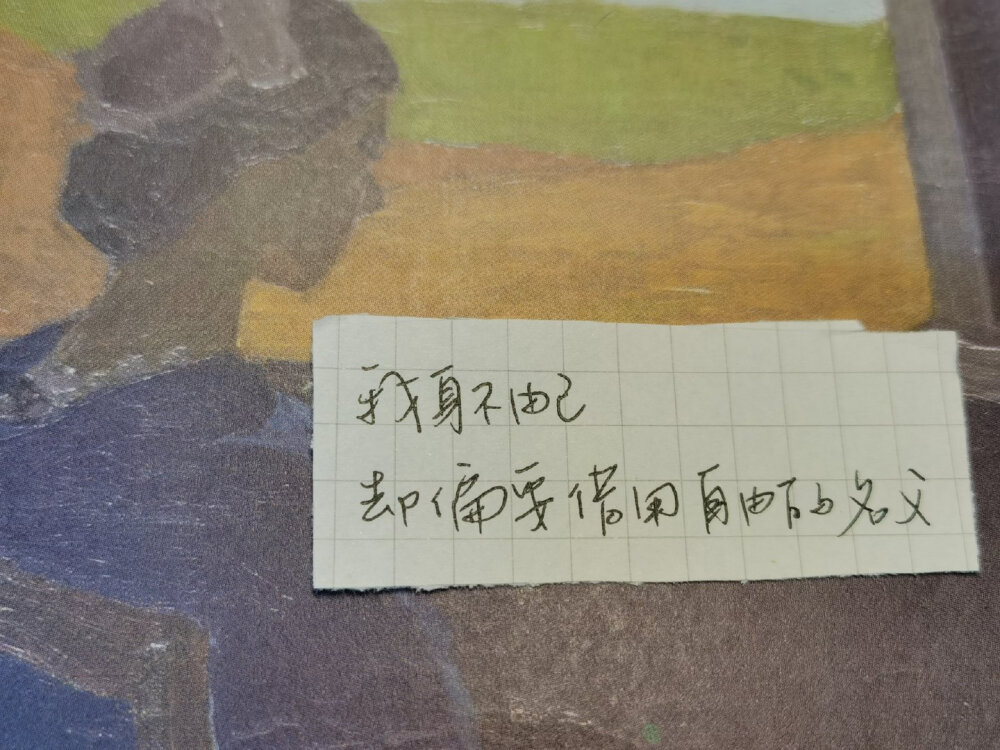 我身不由己
却偏要借用自由的名义